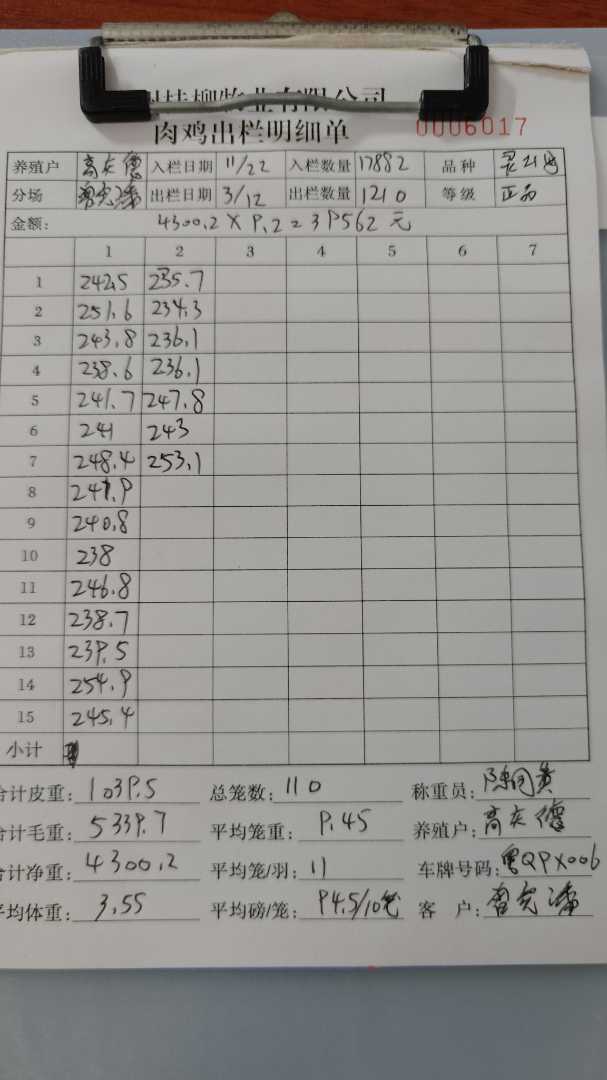 桂柳牧业有限公司
肉鸡出栏明细单 0006017
养殖户 入栏日期 11/22 入栏数量 17882 品种
分场 出栏日期 3/12 出栏数量 1210 等级 正品
金额: 4300.2 X 9.2 = 39562 元
1 2 3 4 5 6 7
1 242.5 235.7
2 251.6 234.3
3 243.8 236.1
4 238.6 236.1
5 241.7 247.8
6 241 243
7 248.4 253.1
8 241.9
9 240.8
10 238
11 246.8
12 238.7
13 239.5
14 254.9
15 245.4
小计
合计皮重: 1039.5 总笼数: 110 称重员:
合计毛重: 5339.7 平均笼重: 9.45 养殖户:
合计净重: 4300.2 平均笼/羽: 11 车牌号码: 粤QPX006
平均体重: 3.55 平均磅/笼: 94.5/10笼 客户: